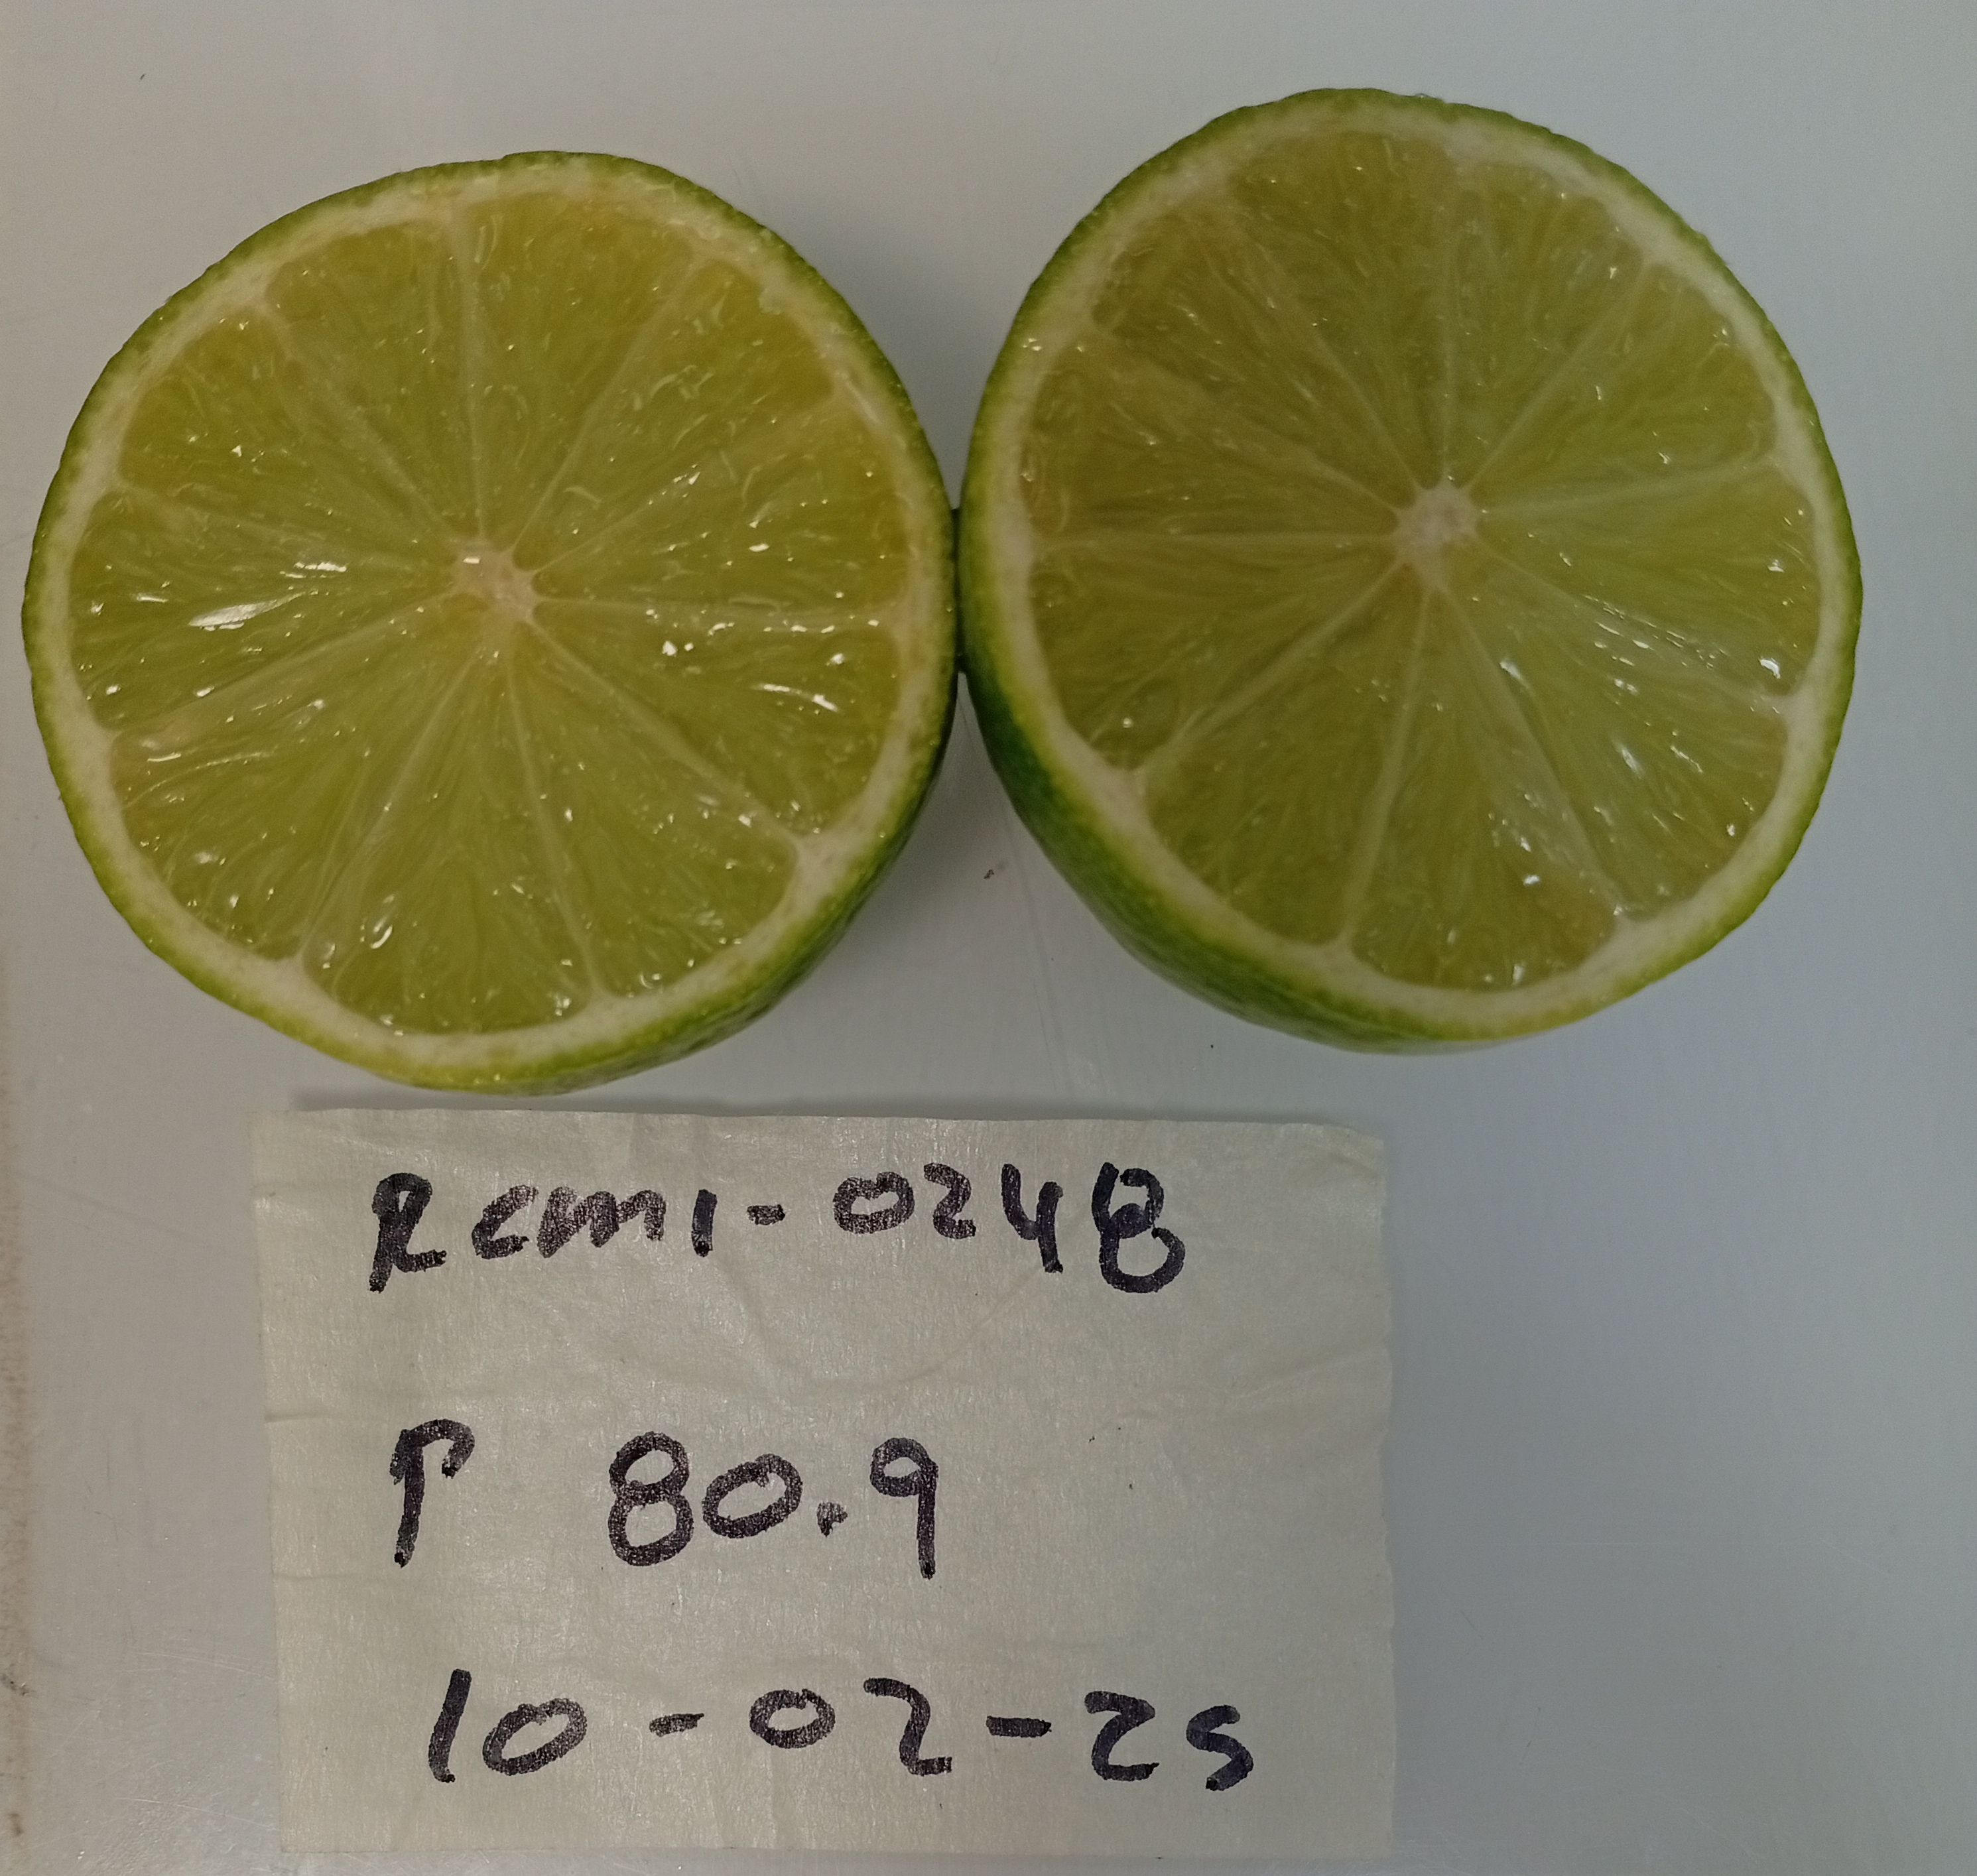 Rcmm1-0248
P 80.9
10-02-25